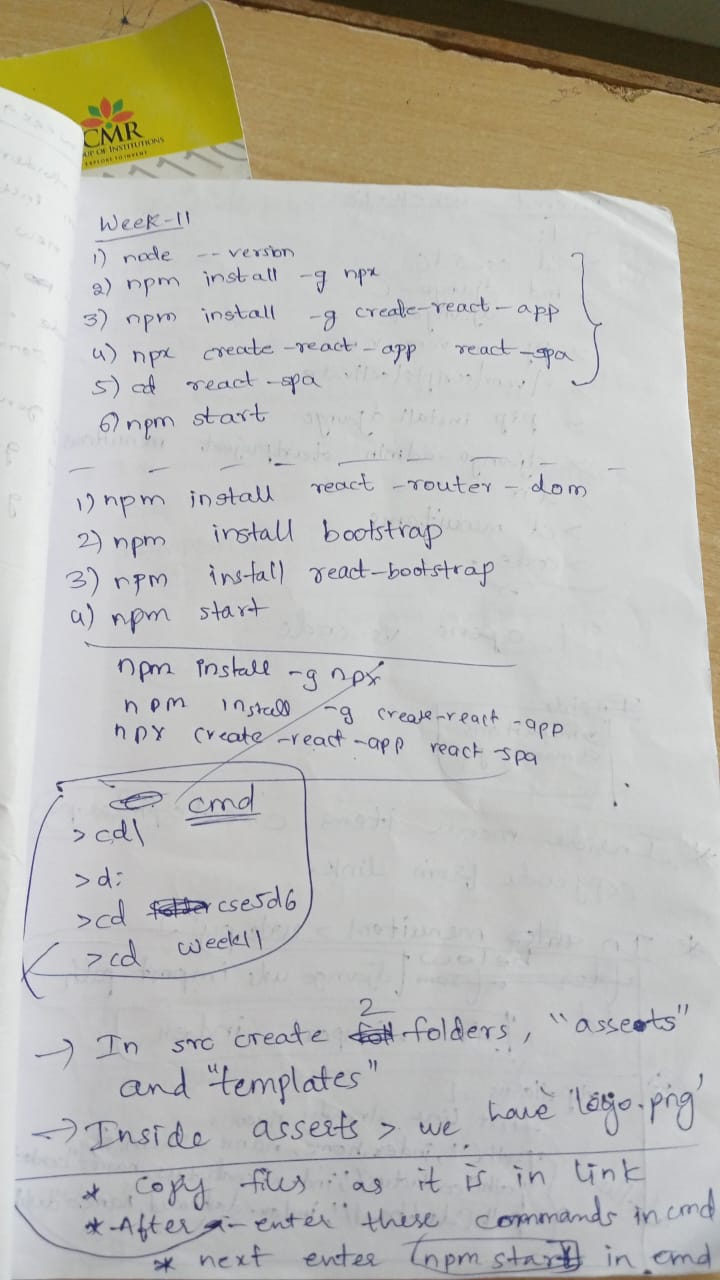 CMR
UP OF INSTITUTIONS
EXPLORE TO INVENT
Week-11
1) node --version
2) npm install -g npx
3) npm install -g create-react-app
4) npx create-react-app react-spa
5) cd react-spa
6) npm start
1) npm install react-router-dom
2) npm install bootstrap
3) npm install react-bootstrap
4) npm start
npm install -g npx
npm install -g create-react-app
npx create-react-app react-spa
cmd
>cd\
>d:
>cd cse5d6
>cd week11
→ In src create 2 folders, "asserts"
and "templates"
→ Inside asserts > we have 'logo.png'
* copy files as it is in link
* After enter these commands in cmd
* next enter npm start in cmd